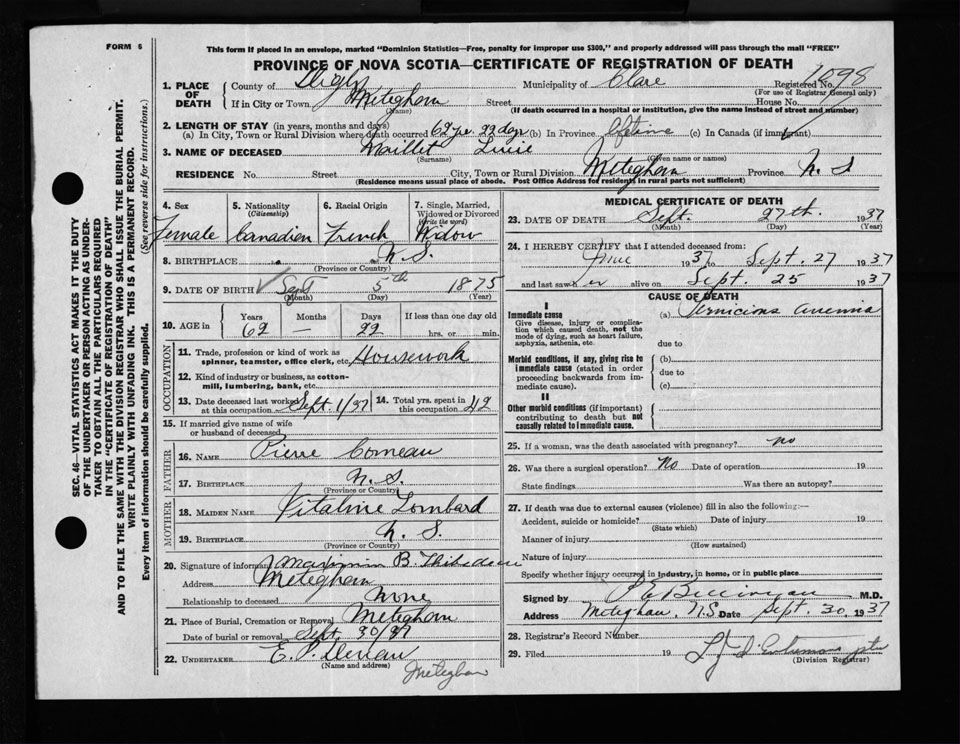 FORM 6
This form if placed in an envelope, marked "Dominion Statistics—Free, penalty for improper use $300," and properly addressed will pass through the mail "FREE"
PROVINCE OF NOVA SCOTIA—CERTIFICATE OF REGISTRATION OF DEATH
1. PLACE OF DEATH County of Digby Municipality of Clare Registered No. 1098
(For use of Registrar General only)
If in City or Town Meteghan Street House No.
(Name) (If death occurred in a hospital or institution, give the name instead of street and number)
2. LENGTH OF STAY (in years, months and days)
(a) In City, Town or Rural Division where death occurred 62 yrs. 22 days (b) In Province lifetime (c) In Canada (if immigrant)
3. NAME OF DECEASED Maillet Lucie
(Surname) (Given name or names)
RESIDENCE No. Street City, Town or Rural Division Meteghan Province N. S
(Residence means usual place of abode. Post Office Address for residents in rural parts not sufficient)
4. Sex Female
5. Nationality (Citizenship) Canadian
6. Racial Origin French
7. Single, Married, Widowed or Divorced (Write the word) Widow
8. BIRTHPLACE N. S.
(Province or Country)
9. DATE OF BIRTH Sept 5th 1875
(Month) (Day) (Year)
10. AGE in Years 62 Months — Days 22 If less than one day hrs. or min.
OCCUPATION
11. Trade, profession or kind of work as spinner, teamster, office clerk, etc. Housework
12. Kind of industry or business, as cotton-mill, lumbering, bank, etc.
13. Date deceased last worked at this occupation Sept. 1/37 14. Total yrs. spent in this occupation 42
15. If married give name of wife or husband of deceased
FATHER
16. NAME Pierre Comeau
17. BIRTHPLACE N. S.
(Province or Country)
MOTHER
18. MAIDEN NAME Vitaline Lombard
19. BIRTHPLACE N. S.
(Province or Country)
20. Signature of informant Maximin B. Thibodeau
Address Meteghan
Relationship to deceased None
21. Place of Burial, Cremation or Removal Meteghan
Date of burial or removal Sept. 30/37
22. UNDERTAKER E. P.
(Name and address) Meteghan
MEDICAL CERTIFICATE OF DEATH
23. DATE OF DEATH Sept. 27th. 1937
(Month) (Day) (Year)
24. I HEREBY CERTIFY that I attended deceased from:
June 1937 to Sept. 27 1937
and last saw her alive on Sept. 25 1937
CAUSE OF DEATH
I
Immediate cause (a) Pernicious anemia
Give disease, injury or complication which caused death, not the mode of dying, such as heart failure, asphyxia, asthenia, etc.
due to
Morbid conditions, if any, giving rise to immediate cause (stated in order proceeding backwards from immediate cause).
(b)
due to
(c)
II
Other morbid conditions (if important) contributing to death but not causally related to immediate cause.
25. If a woman, was the death associated with pregnancy? no
26. Was there a surgical operation? No Date of operation 19
State findings Was there an autopsy?
27. If death was due to external causes (violence) fill in also the following:—
Accident, suicide or homicide? Date of injury 19
(State which)
Manner of injury
(How sustained)
Nature of injury
Specify whether injury occurred in Industry, in home, or in public place
Signed by M.D.
Address Meteghan, N.S. Date Sept. 30, 1937
28. Registrar's Record Number
29. Filed 19
(Division Registrar)
SEC. 46—VITAL STATISTICS ACT MAKES IT THE DUTY
OF THE UNDERTAKER OR PERSON ACTING AS UNDER-
TAKER TO OBTAIN ALL THE PARTICULARS REQUIRED
IN THE "CERTIFICATE OF REGISTRATION OF DEATH"
AND TO FILE THE SAME WITH THE DIVISION REGISTRAR WHO SHALL ISSUE THE BURIAL PERMIT.
WRITE PLAINLY WITH UNFADING INK. THIS IS A PERMANENT RECORD.
Every item of information should be carefully supplied. (See reverse side for instructions.)